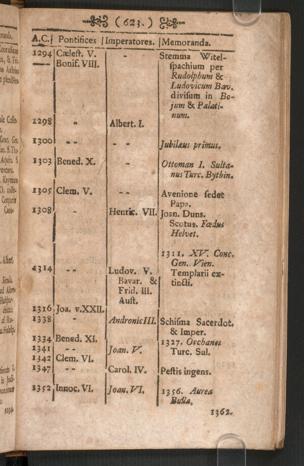 (623.)
A.C. Pontifices Imperatores. Memoranda.
1294 Cælest. V. - Stemma Witel-
Bonif. VIII. spachium per
Rudolphum &
Ludovicum Bav.
divisum in Bo-
jum & Palati-
num.
1298 - Albert. I.
1300 - - - - Jubilæus primus.
1303 Bened. X. - Ottoman I. Sulta-
nus Turc. Bythin.
1305 Clem. V. - - Avenione sedet
Papa.
1308 - - Henric. VII. Joan. Duns.
Scotus. Fœdus
Helvet.
1311. XV. Conc.
Gen. Vien.
4314 - - Ludov. V. Templarii ex-
Bavar. & tincti.
Frid. III.
Aust.
1316 Joa. v.XXII.
1338 - - Andronic III. Schisma Sacerdot.
& Imper.
1334 Bened. XI. 1327. Orchanes
1341 - - Joan. V. Turc. Sul.
1342 Clem. VI.
1347 - - Carol. IV. Pestis ingens.
1352 Innoc. VI. Joan. VI. 1356. Aurea
Bulla.
1362.